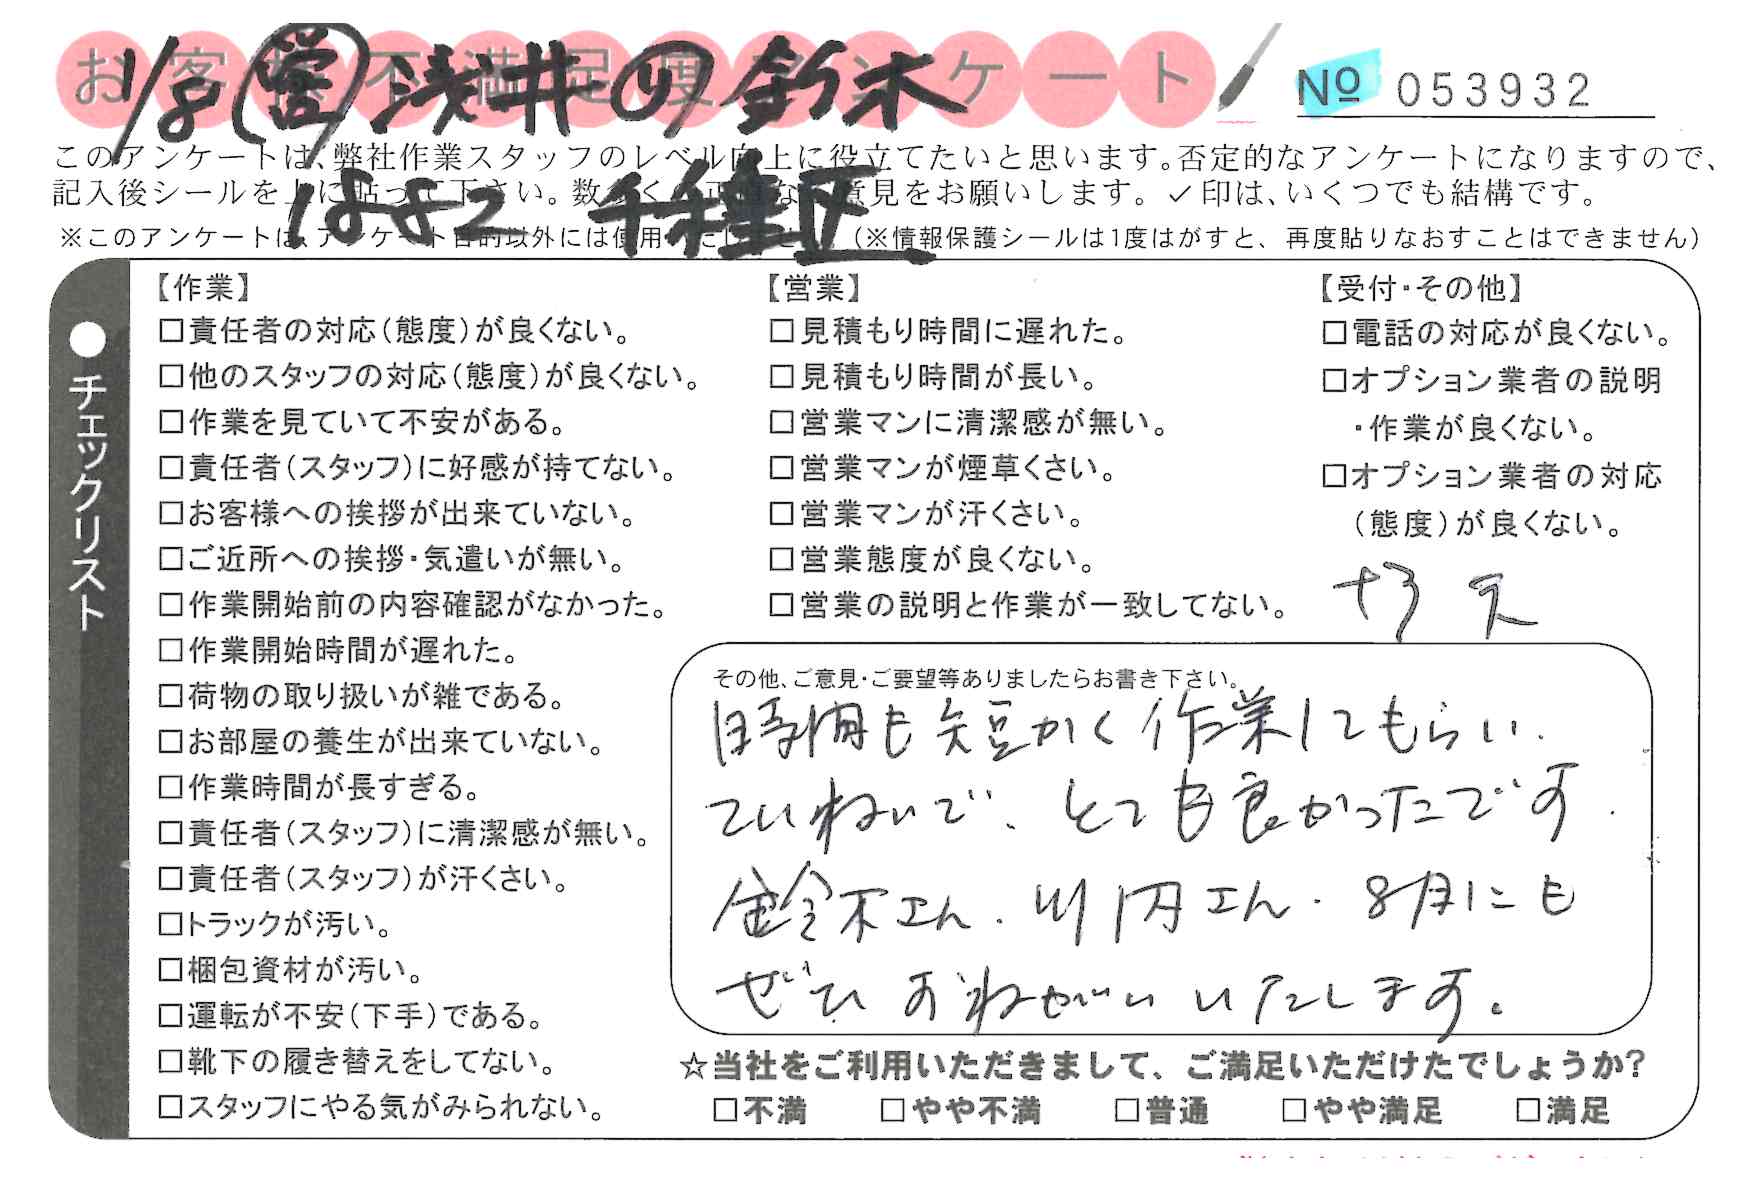 お客様不満足度アンケート
1/8 (営) 浅井 の) 鈴木
№ 053932
このアンケートは、弊社作業スタッフのレベル向上に役立てたいと思います。否定的なアンケートになりますので、
記入後シールを上に貼って下さい。数多くの正直なご意見をお願いします。✓印は、いくつでも結構です。
千種区
※このアンケートは、アンケート目的以外には使用いたしません。(※情報保護シールは1度はがすと、再度貼りなおすことはできません)
●チェックリスト
【作業】
□責任者の対応(態度)が良くない。
□他のスタッフの対応(態度)が良くない。
□作業を見ていて不安がある。
□責任者(スタッフ)に好感が持てない。
□お客様への挨拶が出来ていない。
□ご近所への挨拶・気遣いが無い。
□作業開始前の内容確認がなかった。
□作業開始時間が遅れた。
□荷物の取り扱いが雑である。
□お部屋の養生が出来ていない。
□作業時間が長すぎる。
□責任者(スタッフ)に清潔感が無い。
□責任者(スタッフ)が汗くさい。
□トラックが汚い。
□梱包資材が汚い。
□運転が不安(下手)である。
□靴下の履き替えをしてない。
□スタッフにやる気がみられない。
【営業】
□見積もり時間に遅れた。
□見積もり時間が長い。
□営業マンに清潔感が無い。
□営業マンが煙草くさい。
□営業マンが汗くさい。
□営業態度が良くない。
□営業の説明と作業が一致してない。
【受付・その他】
□電話の対応が良くない。
□オプション業者の説明
・作業が良くない。
□オプション業者の対応
(態度)が良くない。
その他、ご意見・ご要望等ありましたらお書き下さい。
時間も短かく作業してもらい、
ていねいで、とても良かったです。
鈴木さん、川内さん、8月にも
ぜひおねがいいたします。
☆当社をご利用いただきまして、ご満足いただけたでしょうか?
□不満 □やや不満 □普通 □やや満足 □満足